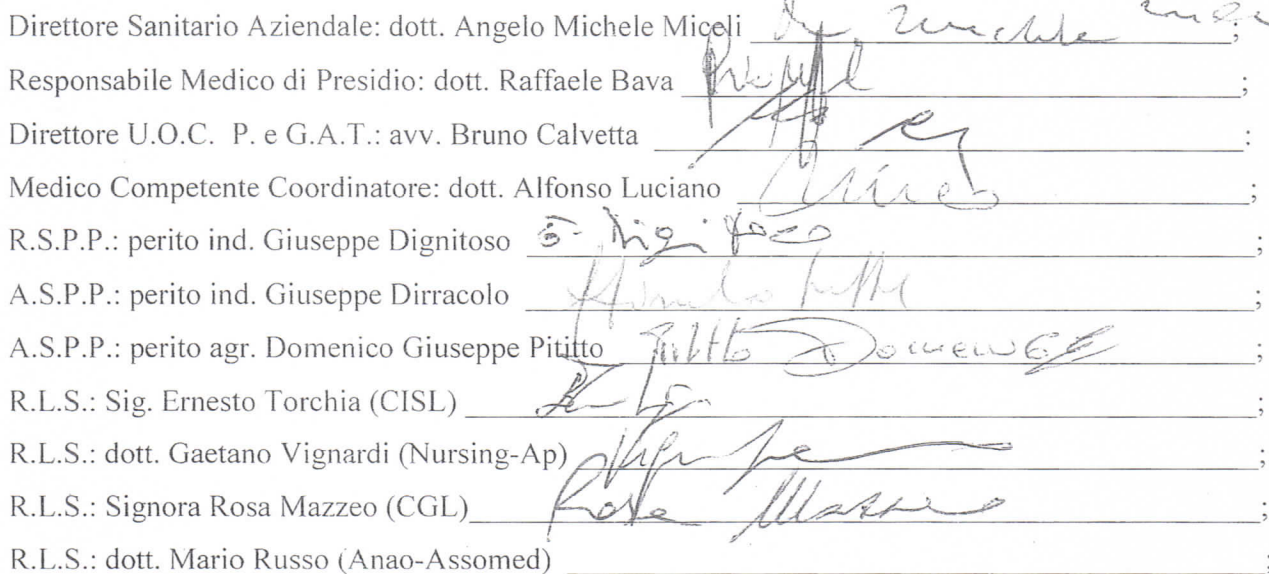 Direttore Sanitario Aziendale: dott. Angelo Michele Miceli ;
Responsabile Medico di Presidio: dott. Raffaele Bava ;
Direttore U.O.C. P. e G.A.T.: avv. Bruno Calvetta :
Medico Competente Coordinatore: dott. Alfonso Luciano ;
R.S.P.P.: perito ind. Giuseppe Dignitoso ;
A.S.P.P.: perito ind. Giuseppe Dirracolo ;
A.S.P.P.: perito agr. Domenico Giuseppe Pititto ;
R.L.S.: Sig. Ernesto Torchia (CISL) ;
R.L.S.: dott. Gaetano Vignardi (Nursing-Ap) ;
R.L.S.: Signora Rosa Mazzeo (CGL) Rosa Mazzeo ;
R.L.S.: dott. Mario Russo (Anao-Assomed) ;